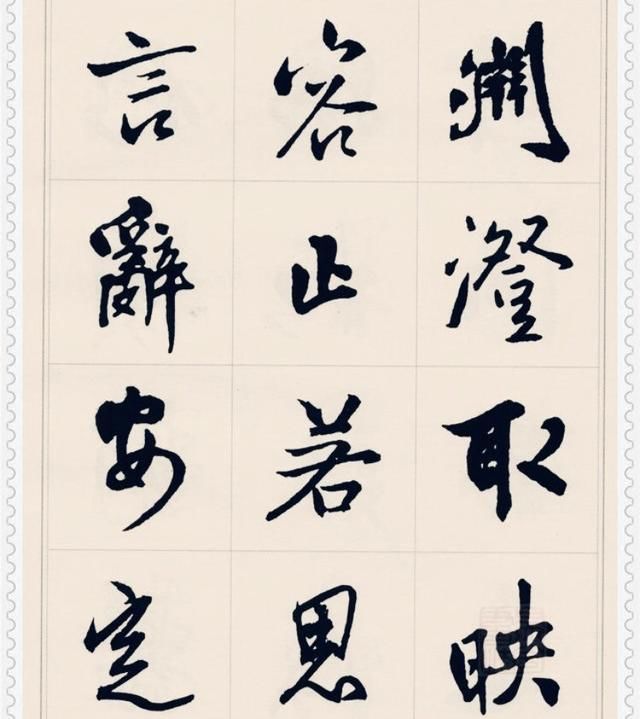 淵澄取映
容止若思
言辭安定